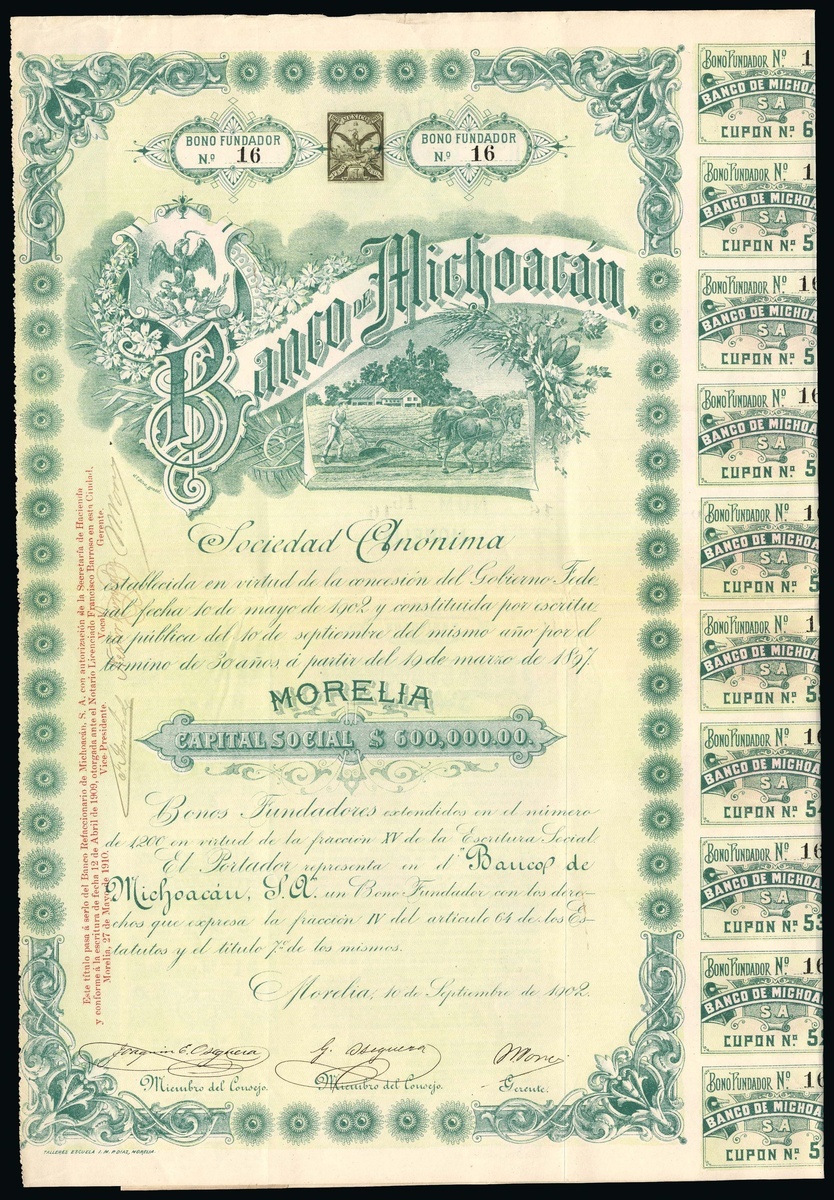 BONO FUNDADOR
N.º 16
MEXICO
BONO FUNDADOR
N.º 16
Banco DE Michoacán,
Sociedad Anónima
establecida en virtud de la concesión del Gobierno Fede-
ral fecha 10 de mayo de 1902 y constituida por escritu-
ra pública del 10 de septiembre del mismo año por el
término de 30 años, á partir del 19 de marzo de 1897.
MORELIA
CAPITAL SOCIAL $ 600,000.00.
Bonos Fundadores extendidos en el número
de 1200 en virtud de la fracción XV de la Escritura Social.
El Portador representa en el "Banco de
Michoacán, S. A." un Bono Fundador con los dere-
chos que expresa la fracción IV del artículo 64 de los Es-
tatutos y el título 7º de los mismos.
Morelia, 10 de Septiembre de 1902.
Joaquin E. Oseguera
G. Oseguera
Miembro del Consejo.
Miembro del Consejo.
Gerente.
TALLERES ESCUELA I. M. P. DIAZ, MORELIA.
Este título pasa á serlo del Banco Refaccionario de Michoacán, S. A. con autorización de la Secretaría de Hacienda
y conforme á la escritura de fecha 12 de Abril de 1909, otorgada ante el Notario Licenciado Francisco Barroso en esta Ciudad.
Morelia, 27 de Mayo de 1910.
Vice-Presidente.
Vocal
Gerente.
BONO FUNDADOR Nº 1
BANCO DE MICHOA
S A
CUPON Nº 6
BONO FUNDADOR Nº 1
BANCO DE MICHOA
S A
CUPON Nº 5
BONO FUNDADOR Nº 16
BANCO DE MICHOA
S A
CUPON Nº 5
BONO FUNDADOR Nº 16
BANCO DE MICHOA
S A
CUPON Nº 5
BONO FUNDADOR Nº 16
BANCO DE MICHOA
S A
CUPON Nº 5
BONO FUNDADOR Nº 1
BANCO DE MICHOA
S A
CUPON Nº 5
BONO FUNDADOR Nº 16
BANCO DE MICHOA
S A
CUPON Nº 54
BONO FUNDADOR Nº 16
BANCO DE MICHOA
S A
CUPON Nº 53
BONO FUNDADOR Nº 16
BANCO DE MICHOA
S A
CUPON Nº 52
BONO FUNDADOR Nº 16
BANCO DE MICHOA
S A
CUPON Nº 5